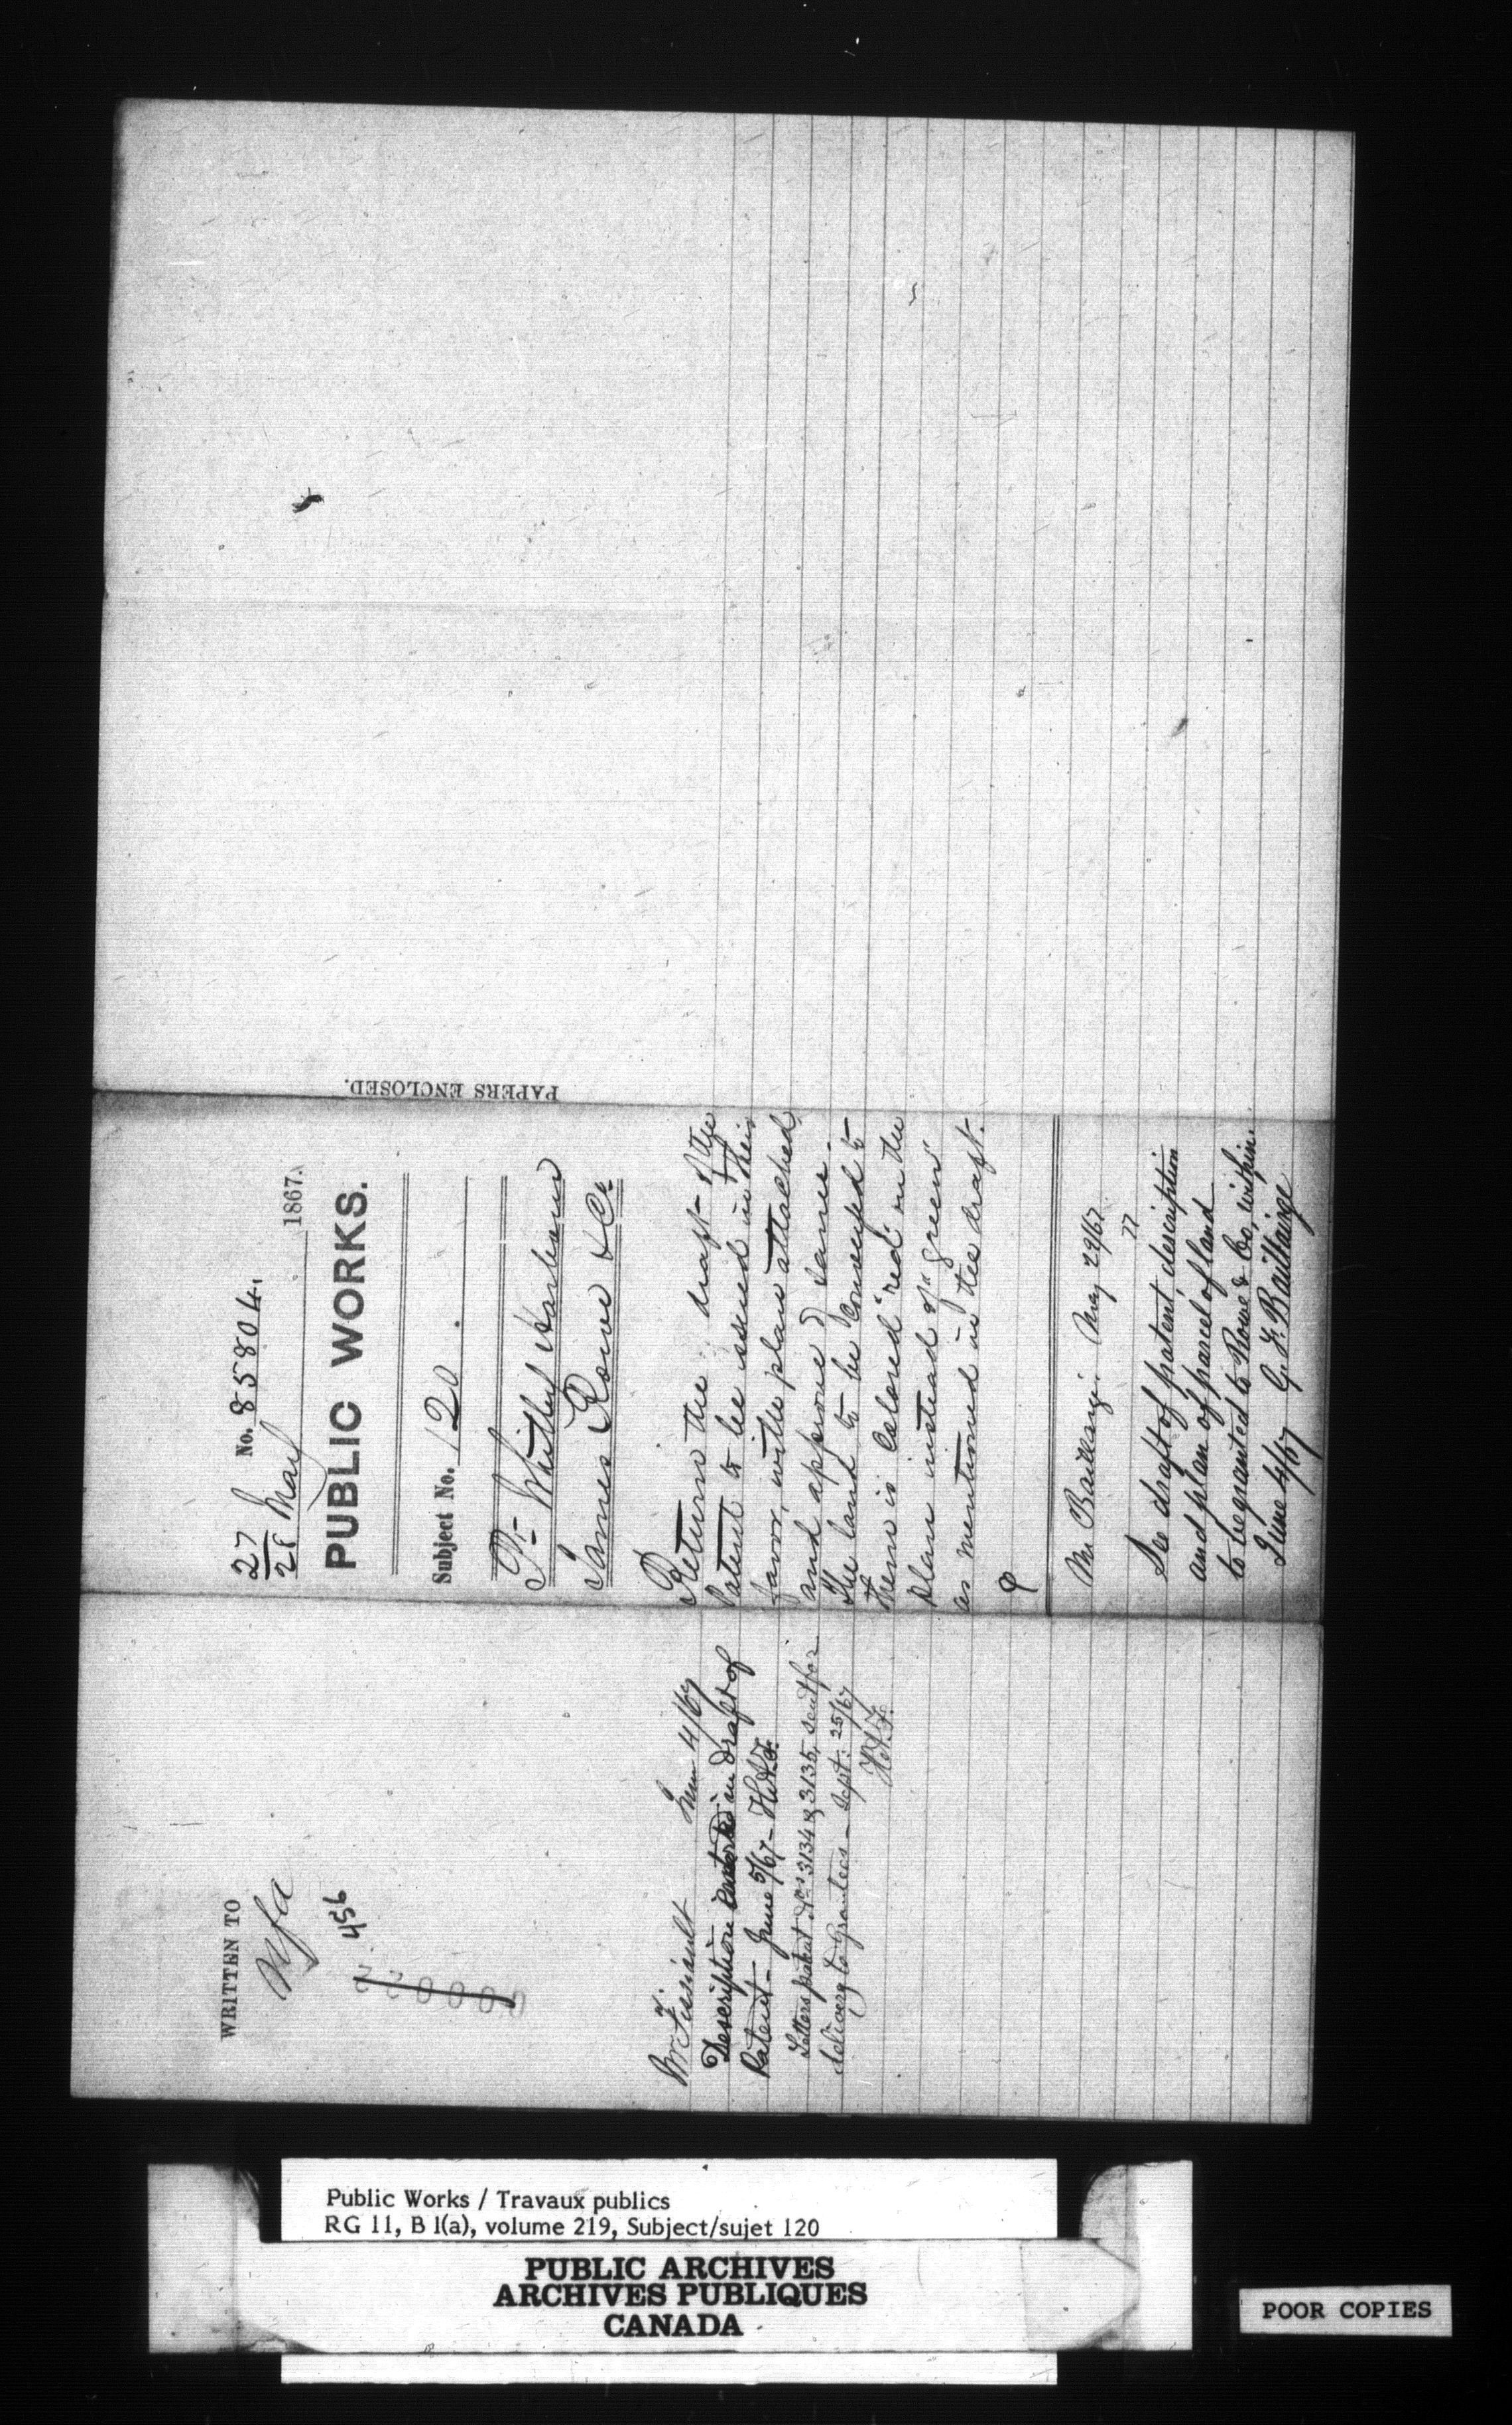 No. 85804.
27
28 May 1867.
PUBLIC WORKS.
Subject No. 120.
Pt Whitby Harbour
James Rowe & Co.
Return the draft of the
Patent to be issued in their
favor, with plan attached
and approve of same.
The land to be conveyed to
them is colored "red" on the
plan instead of "green"
as mentioned in the draft.
Mr Baillairgé May 29/67
See draft of patent description
and plan of parcel of land
to be granted to Rowe & Co, within.
June 4/67 G. F. Baillairgé
PAPERS ENCLOSED.
WRITTEN TO
456
June 4/67
Description in draft of
Patent - June 5/67 -
Letters patent Nos 3134 & 3135, sent for
delivery to Grantees - Sept: 25/67
Public Works / Travaux publics
RG 11, B 1(a), volume 219, Subject/sujet 120
PUBLIC ARCHIVES
ARCHIVES PUBLIQUES
CANADA
POOR COPIES